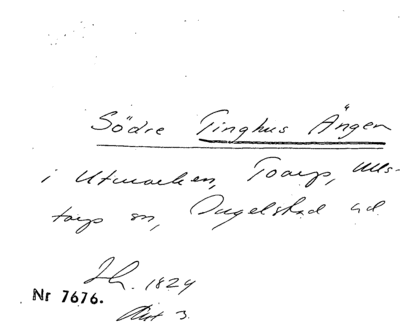 Södre Tinghus Ängen
i Utmarken, Toarp, Ulls-
torps sn, Ingelstad hd.
1824
Nr 7676.
Akt 3.